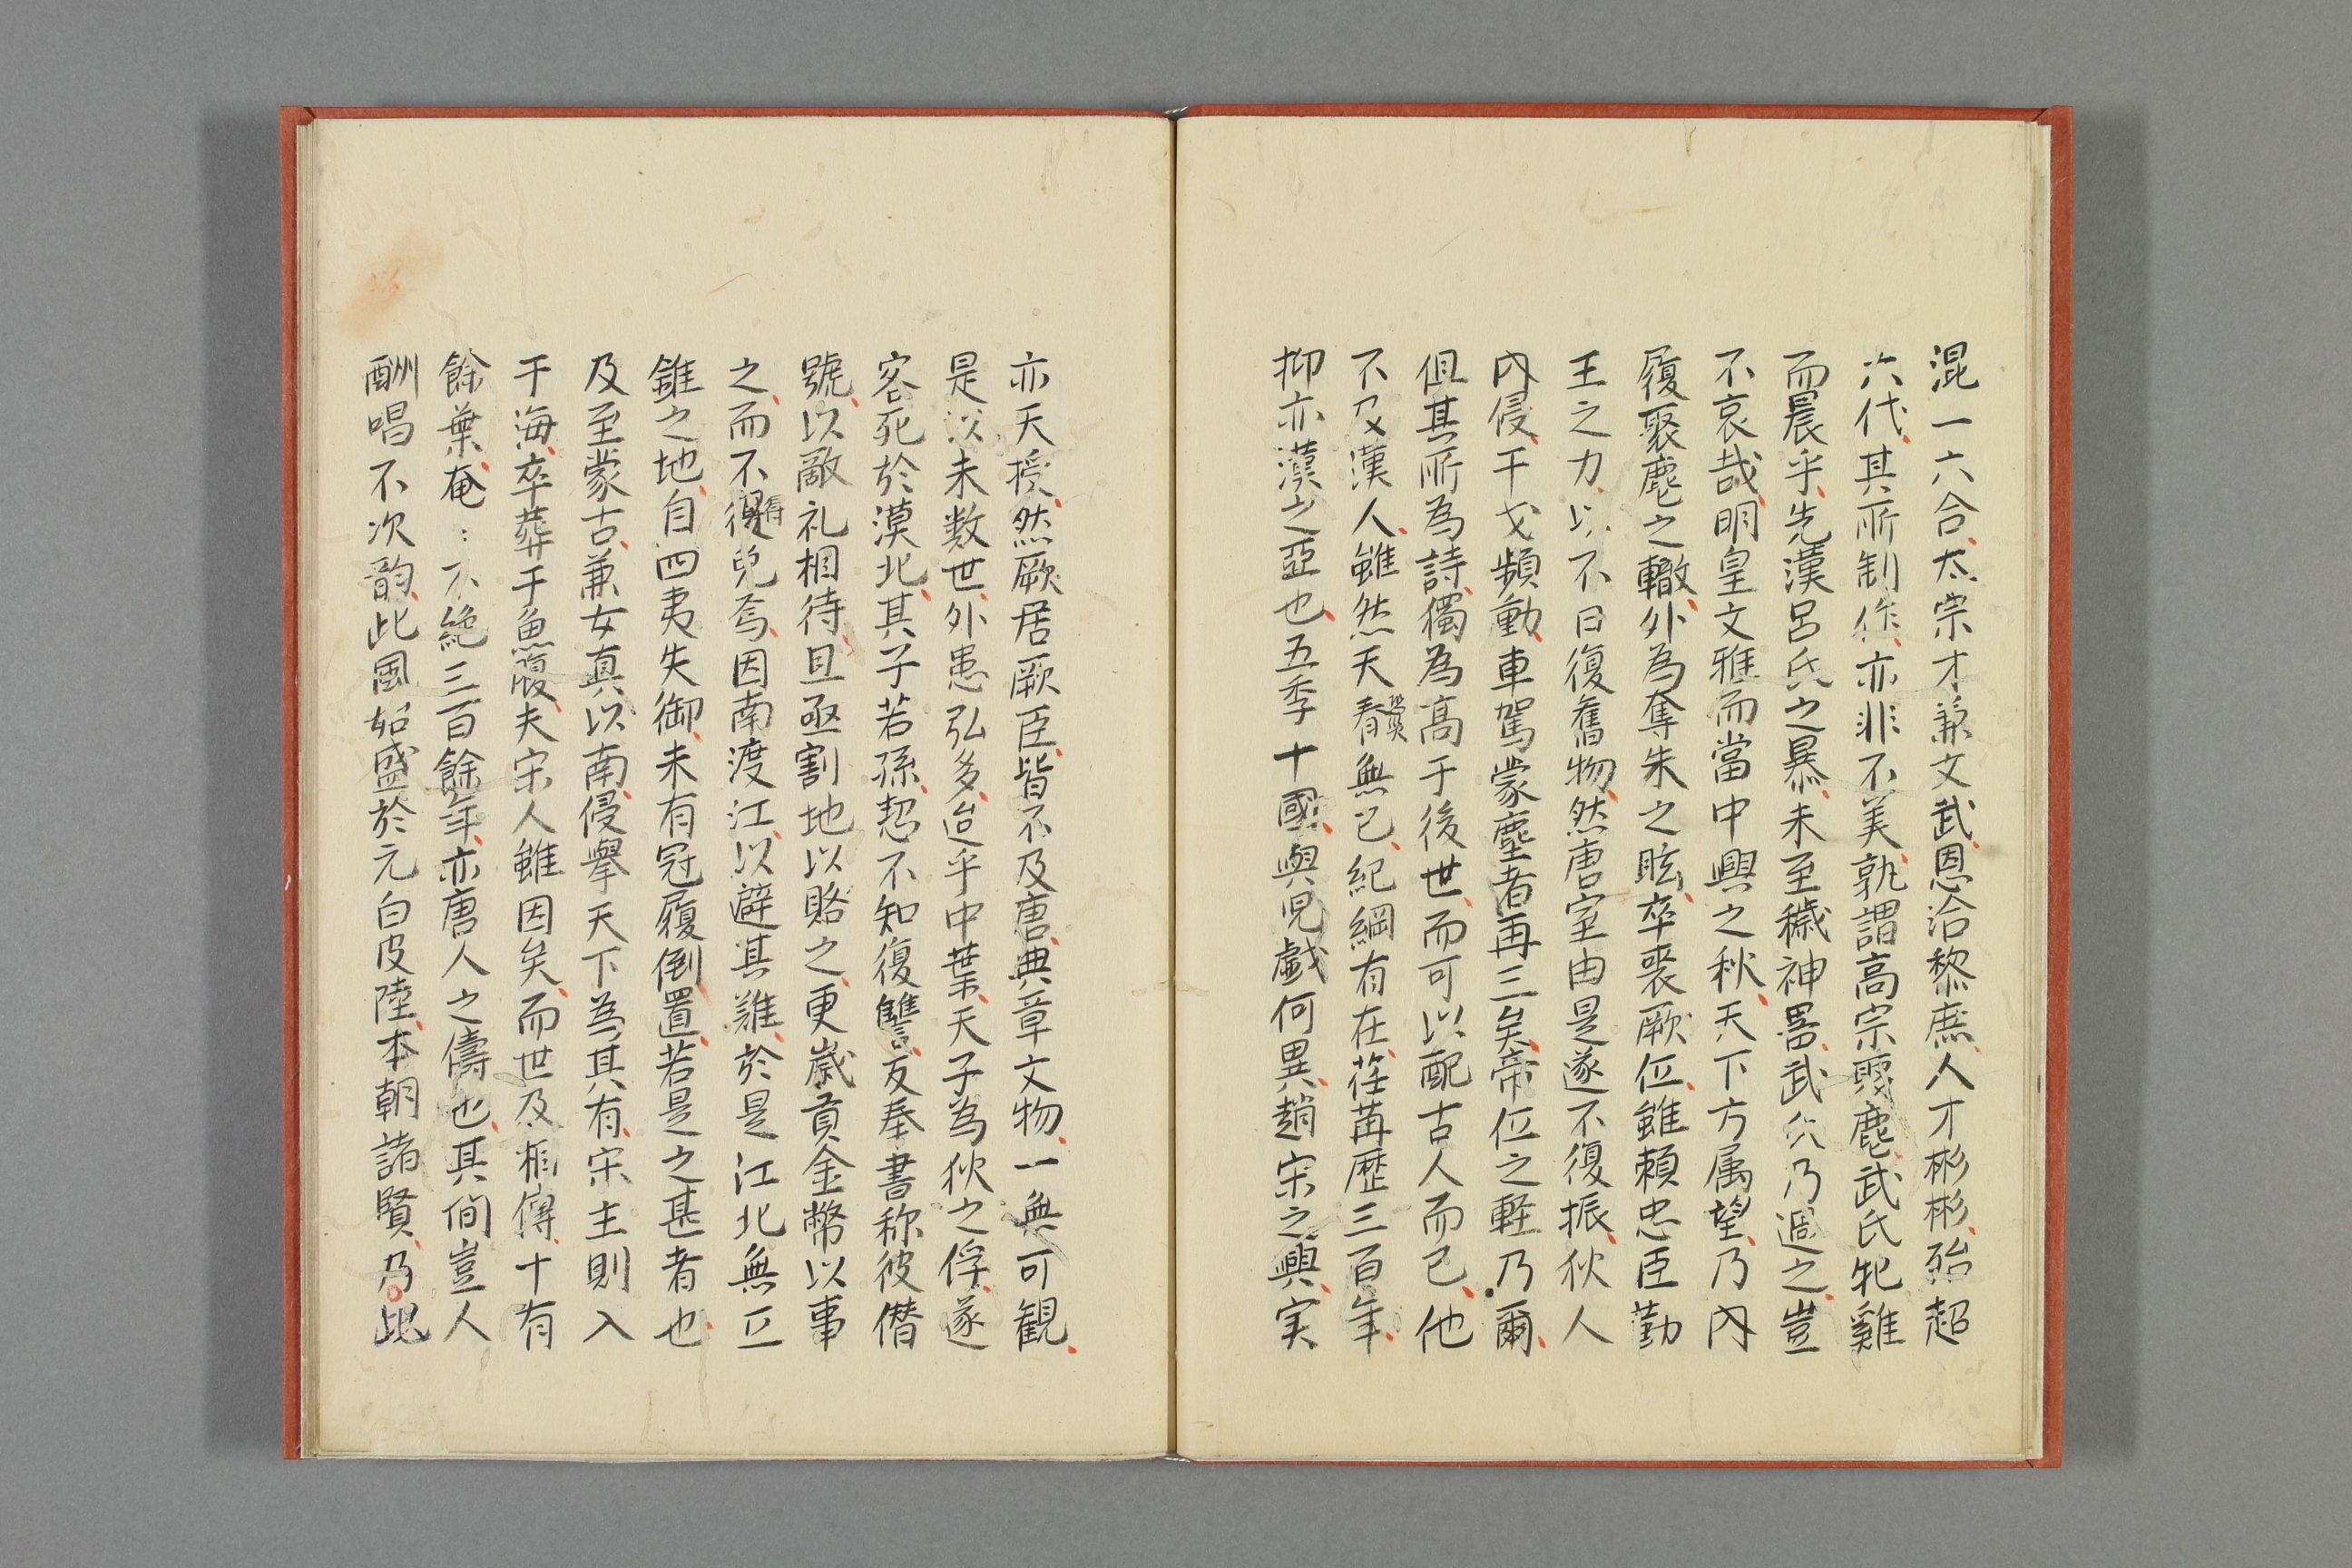 混一六合太宗才兼文武恩洽黎庶人才彬彬殆超
六代其所制作亦非不美孰謂高宗聚麀武氏牝雞
而晨乎先漢呂氏之暴未至穢神器武公乃過之豈
不哀哉明皇文雅而當中興之秋天下方属望乃內
履聚麀之轍外為奪朱之眩卒喪厥位雖賴忠臣勤
王之力以不日復舊物然唐室由是遂不復振狄人
內侵干戈頻動車駕蒙塵者再三矣帝位之軽乃爾
但其所為詩獨為髙于後世而可以配古人而已他
不及漢人雖然天眷無已紀綱有在荏苒歴三百年
抑亦漢之亞也五季十國與児戯何異趙宋之興実
亦天授然厥居厥臣皆不及唐典章文物一無可観
是以未数世外患弘多迨乎中葉天子為狄之俘遂
客死於漠北其子若孫恝不知復讐反奉書称彼僣
號以敵礼相待且亟割地以賂之更歳貢金幣以事
之而不得免焉因南渡江以避其難於是江北無立
錐之地自四夷失御未有冠履倒置若是之甚者也
及至蒙古兼女真以南侵擧天下為其有宋主則入
于海卒葬于魚腹夫宋人雖因矣而世及相傳十有
餘葉奄〻不絶三百餘年亦唐人之儔也其間豈人
酬唱不次韵此風始盛於元白皮陸本朝諸賢乃此